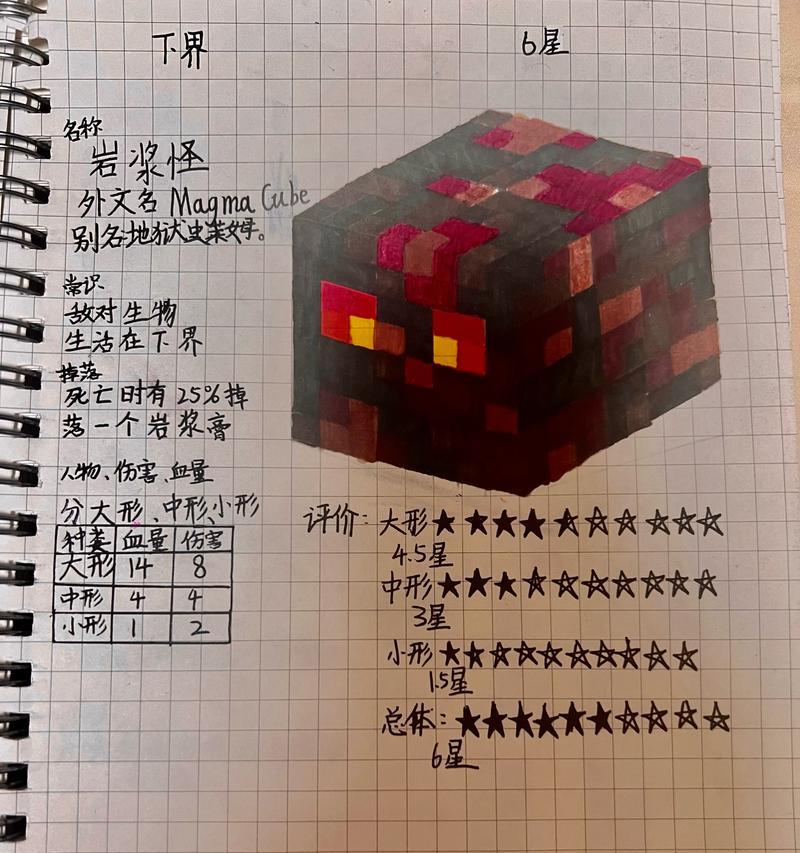 下界
6星
名称
岩浆怪
外文名 Magma Cube
别名地狱史莱姆。
常识
敌对生物
生活在下界
掉落
死亡时有25%掉
落一个岩浆膏
人物、伤害、血量
分大形、中形、小形
种类 血量 伤害
大形 14 8
中形 4 4
小形 1 2
评价：大形★★★★☆☆☆☆☆☆
4.5星
中形★★★☆☆☆☆☆☆☆
3星
小形★★☆☆☆☆☆☆☆☆
1.5星
总体：★★★★★★☆☆☆☆
6星